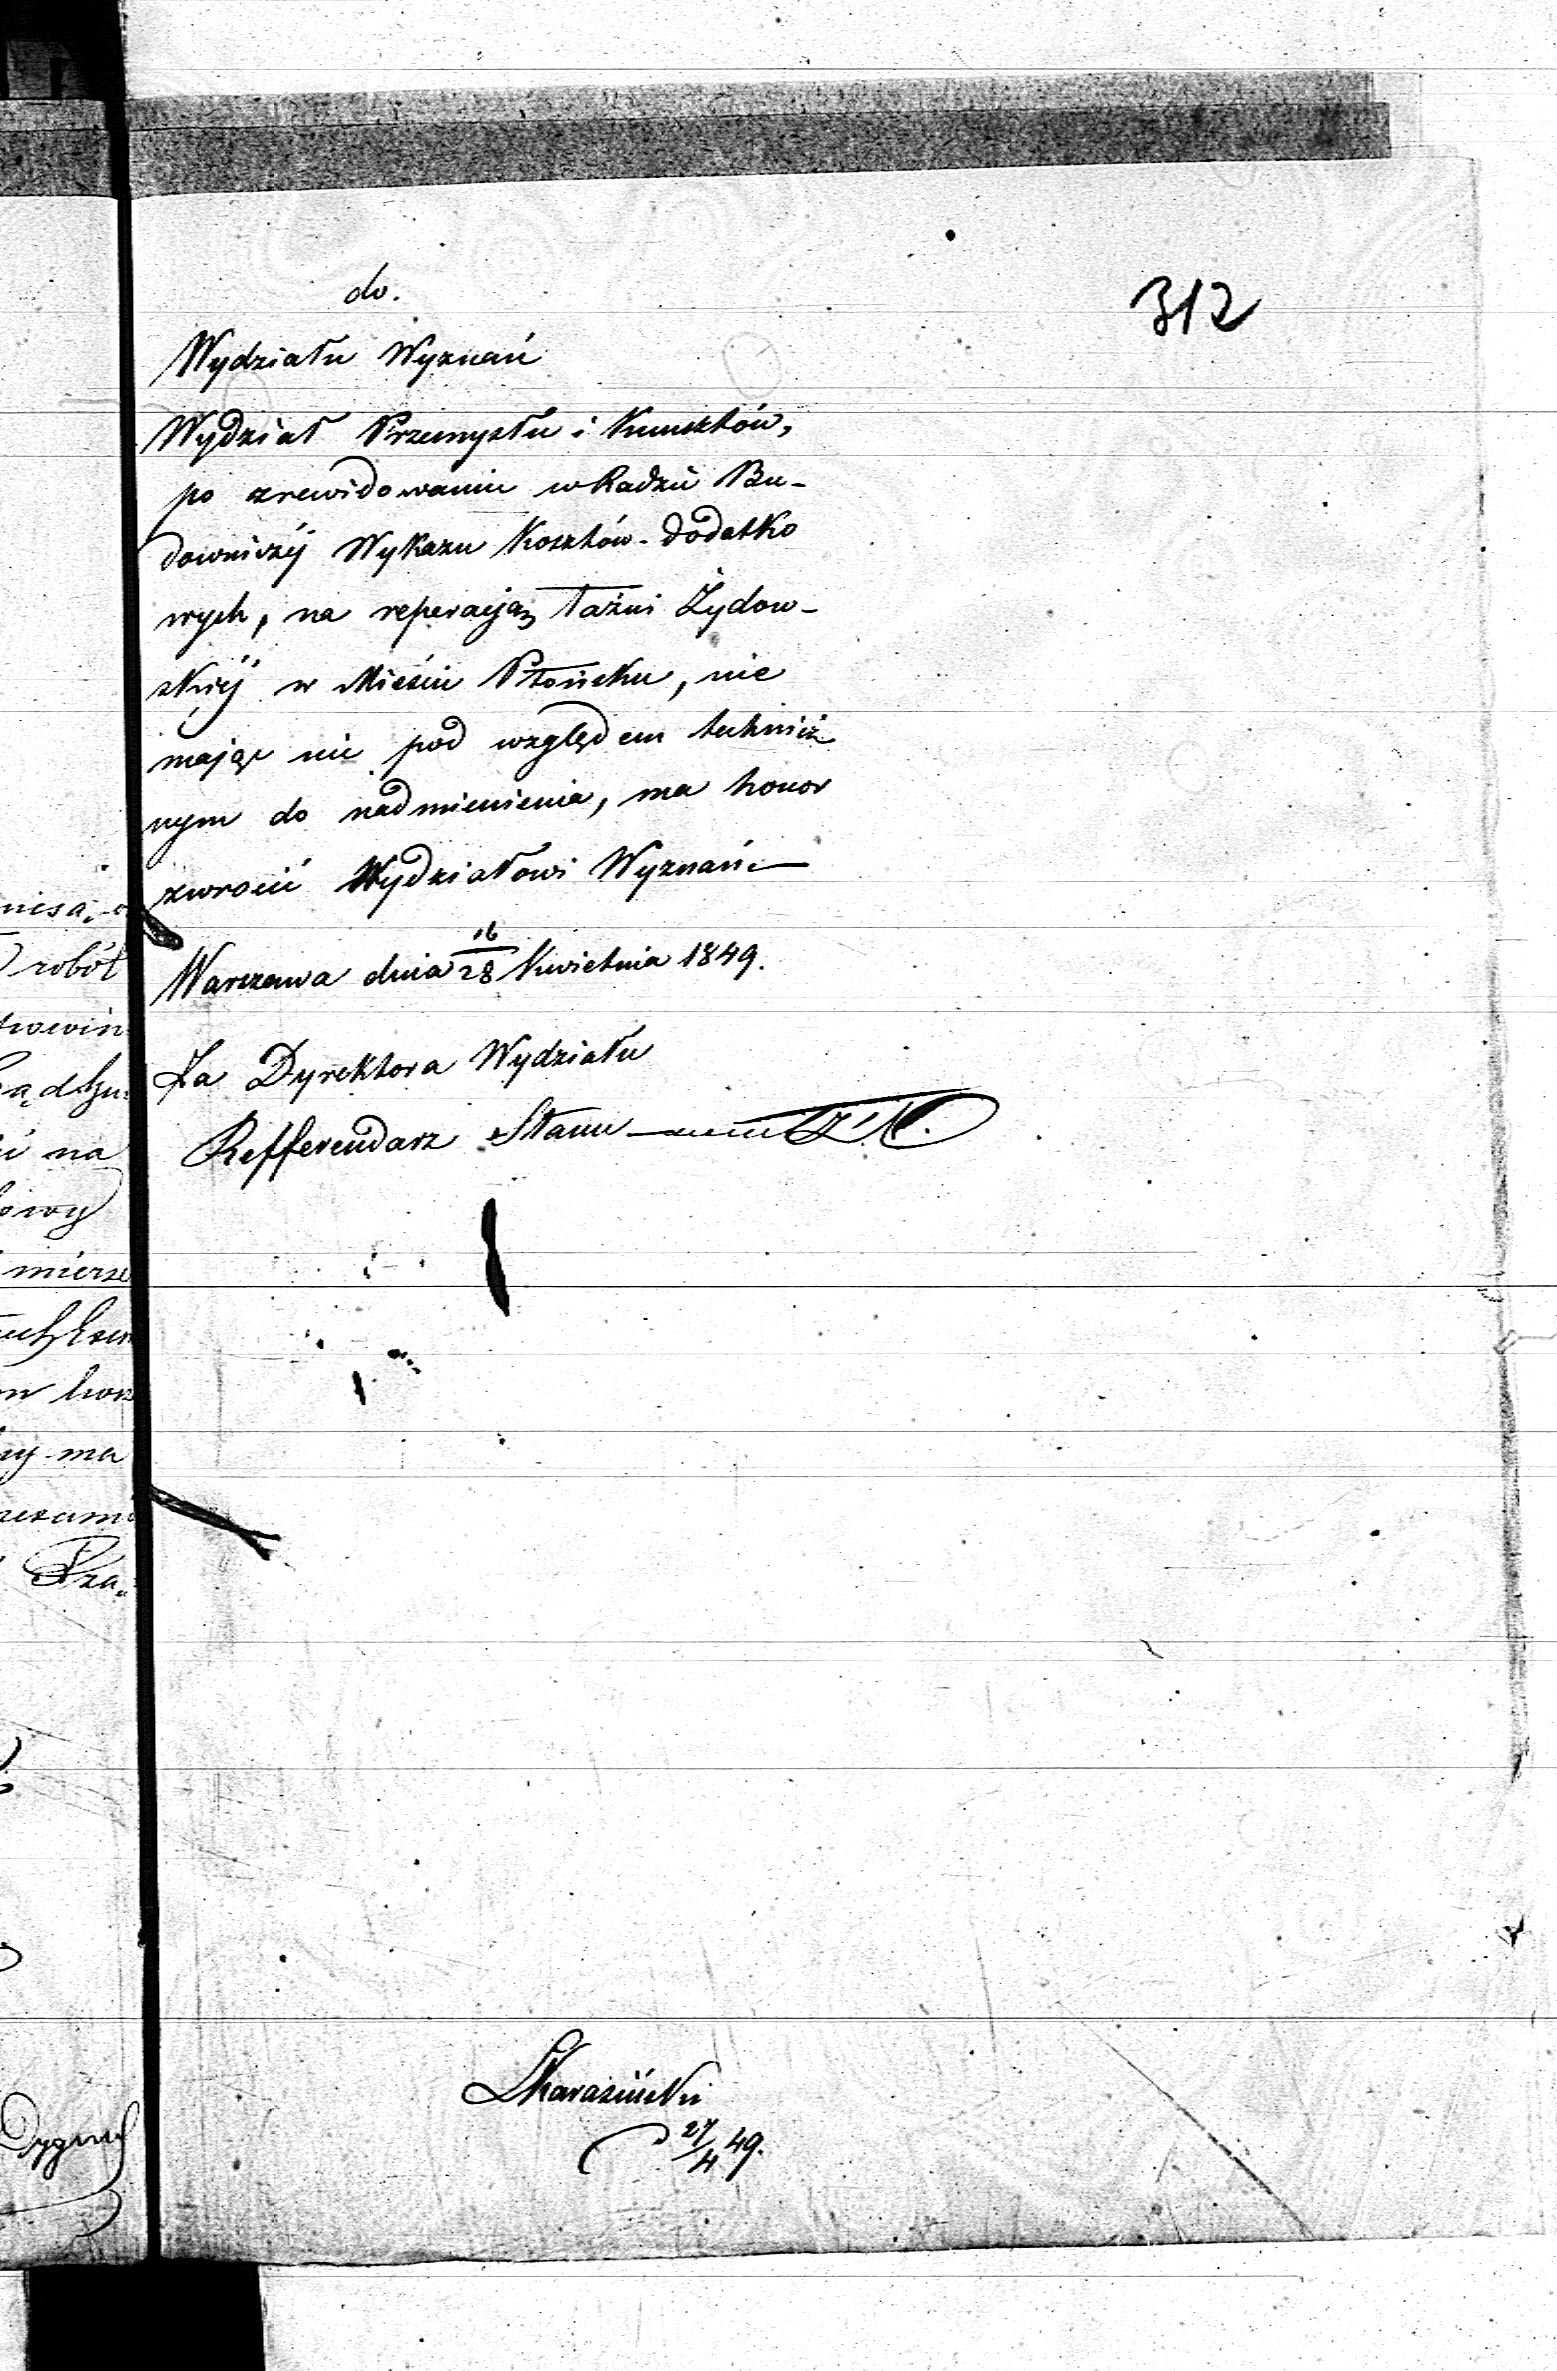 do.
312
Wydziału Wyznań
Wydział Przemysłu i Kunsztów,
po zrewidowaniu w Radzie Bu-
downiczéj Wykazu Kosztów dodatko
wych, na reperacyą Łaźni Żydow-
skiéj w Mieście Płońsku, nie
mając nic pod względem technicz
nym do nadmienienia, ma honor
zwrocić Wydziałowi Wyznań
Warszawa dnia 16/28 Kwietnia 1849.
Za Dyrektora Wydziału
Refferendarz Stanu
27/4 49.
robót
na
mierze